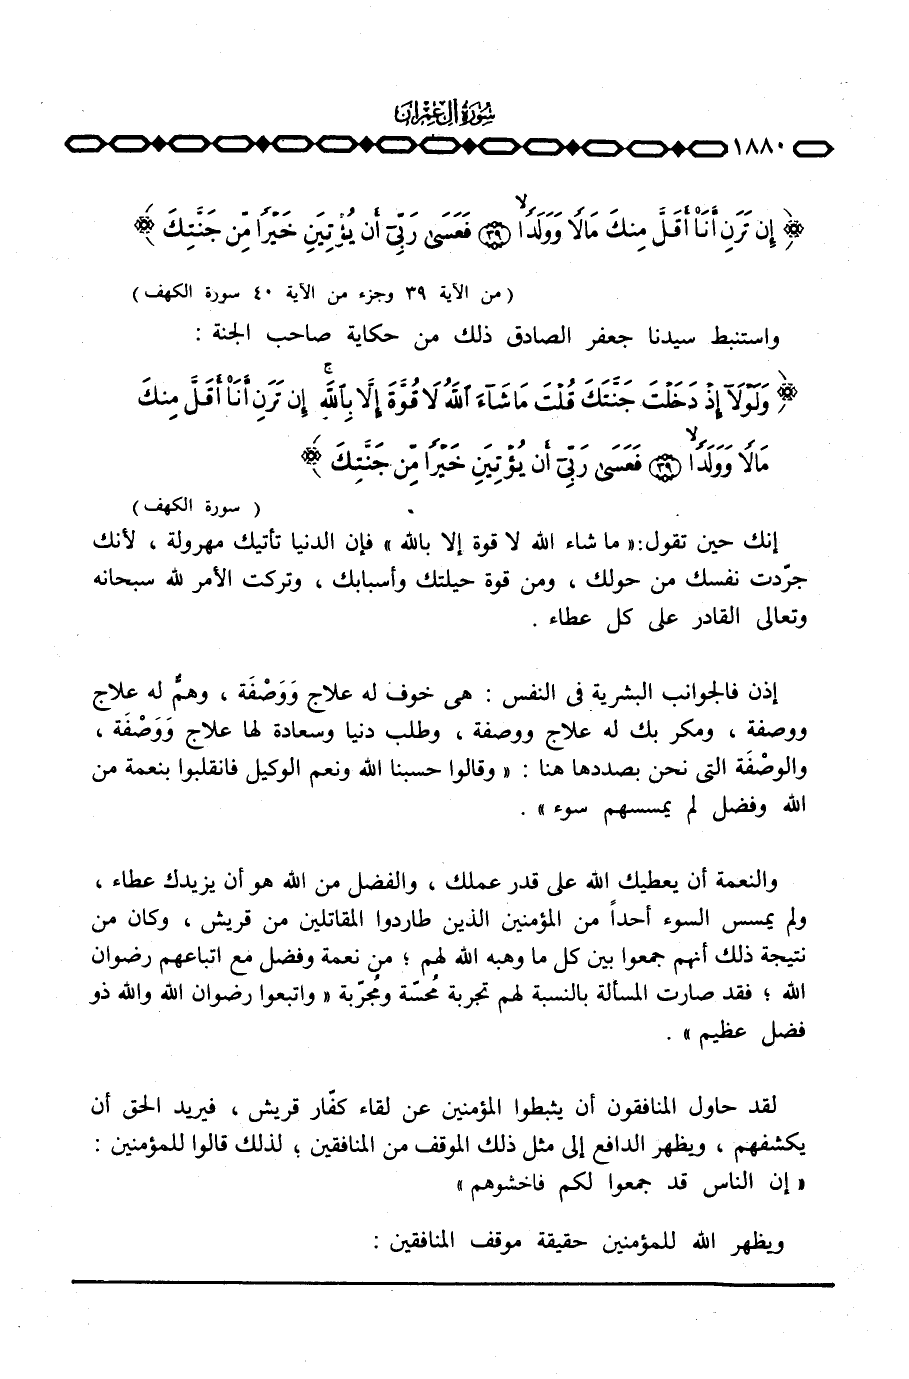 سُورَةُ آلِ عِمْرَان
١٨٨٠
﴿ إِن تَرَنِ أَنَا۠ أَقَلَّ مِنكَ مَالًا وَوَلَدًا ۙ ﴿٣٩﴾ فَعَسَىٰ رَبِّيٓ أَن يُؤْتِيَنِ خَيْرًا مِّن جَنَّتِكَ ﴾
( من الآية ٣٩ وجزء من الآية ٤٠ سورة الكهف )
واستنبط سيدنا جعفر الصادق ذلك من حكاية صاحب الجنة :
﴿ وَلَوْلَآ إِذْ دَخَلْتَ جَنَّتَكَ قُلْتَ مَا شَآءَ ٱللَّهُ لَا قُوَّةَ إِلَّا بِٱللَّهِ ۚ إِن تَرَنِ أَنَا۠ أَقَلَّ مِنكَ
مَالًا وَوَلَدًا ۙ ﴿٣٩﴾ فَعَسَىٰ رَبِّيٓ أَن يُؤْتِيَنِ خَيْرًا مِّن جَنَّتِكَ ﴾
( سورة الكهف )
إنك حين تقول:« ما شاء الله لا قوة إلا بالله » فإن الدنيا تأتيك مهرولة ، لأنك
جرّدت نفسك من حولك ، ومن قوة حيلتك وأسبابك ، وتركت الأمر لله سبحانه
وتعالى القادر على كل عطاء .
إذن فالجوانب البشرية فى النفس : هى خوف له علاج وَوَصْفَة ، وهمٌّ له علاج
ووصفة ، ومكر بك له علاج ووصفة ، وطلب دنيا وسعادة لها علاج وَوَصْفَة ،
والوصْفَة التى نحن بصددها هنا : « وقالوا حسبنا الله ونعم الوكيل فانقلبوا بنعمة من
الله وفضل لم يمسسهم سوء » .
والنعمة أن يعطيك الله على قدر عملك ، والفضل من الله هو أن يزيدك عطاء ،
ولم يمسس السوء أحداً من المؤمنين الذين طاردوا المقاتلين من قريش ، وكان من
نتيجة ذلك أنهم جمعوا بين كل ما وهبه الله لهم ؛ من نعمة وفضل مع اتباعهم رضوان
الله ؛ فقد صارت المسألة بالنسبة لهم تجربة مُحسّة ومُجرّبة « واتبعوا رضوان الله والله ذو
فضل عظيم » .
لقد حاول المنافقون أن يثبطوا المؤمنين عن لقاء كفّار قريش ، فيريد الحق أن
يكشفهم ، ويظهر الدافع إلى مثل ذلك الموقف من المنافقين ؛ لذلك قالوا للمؤمنين :
« إن الناس قد جمعوا لكم فاخشوهم »
ويظهر الله للمؤمنين حقيقة موقف المنافقين :